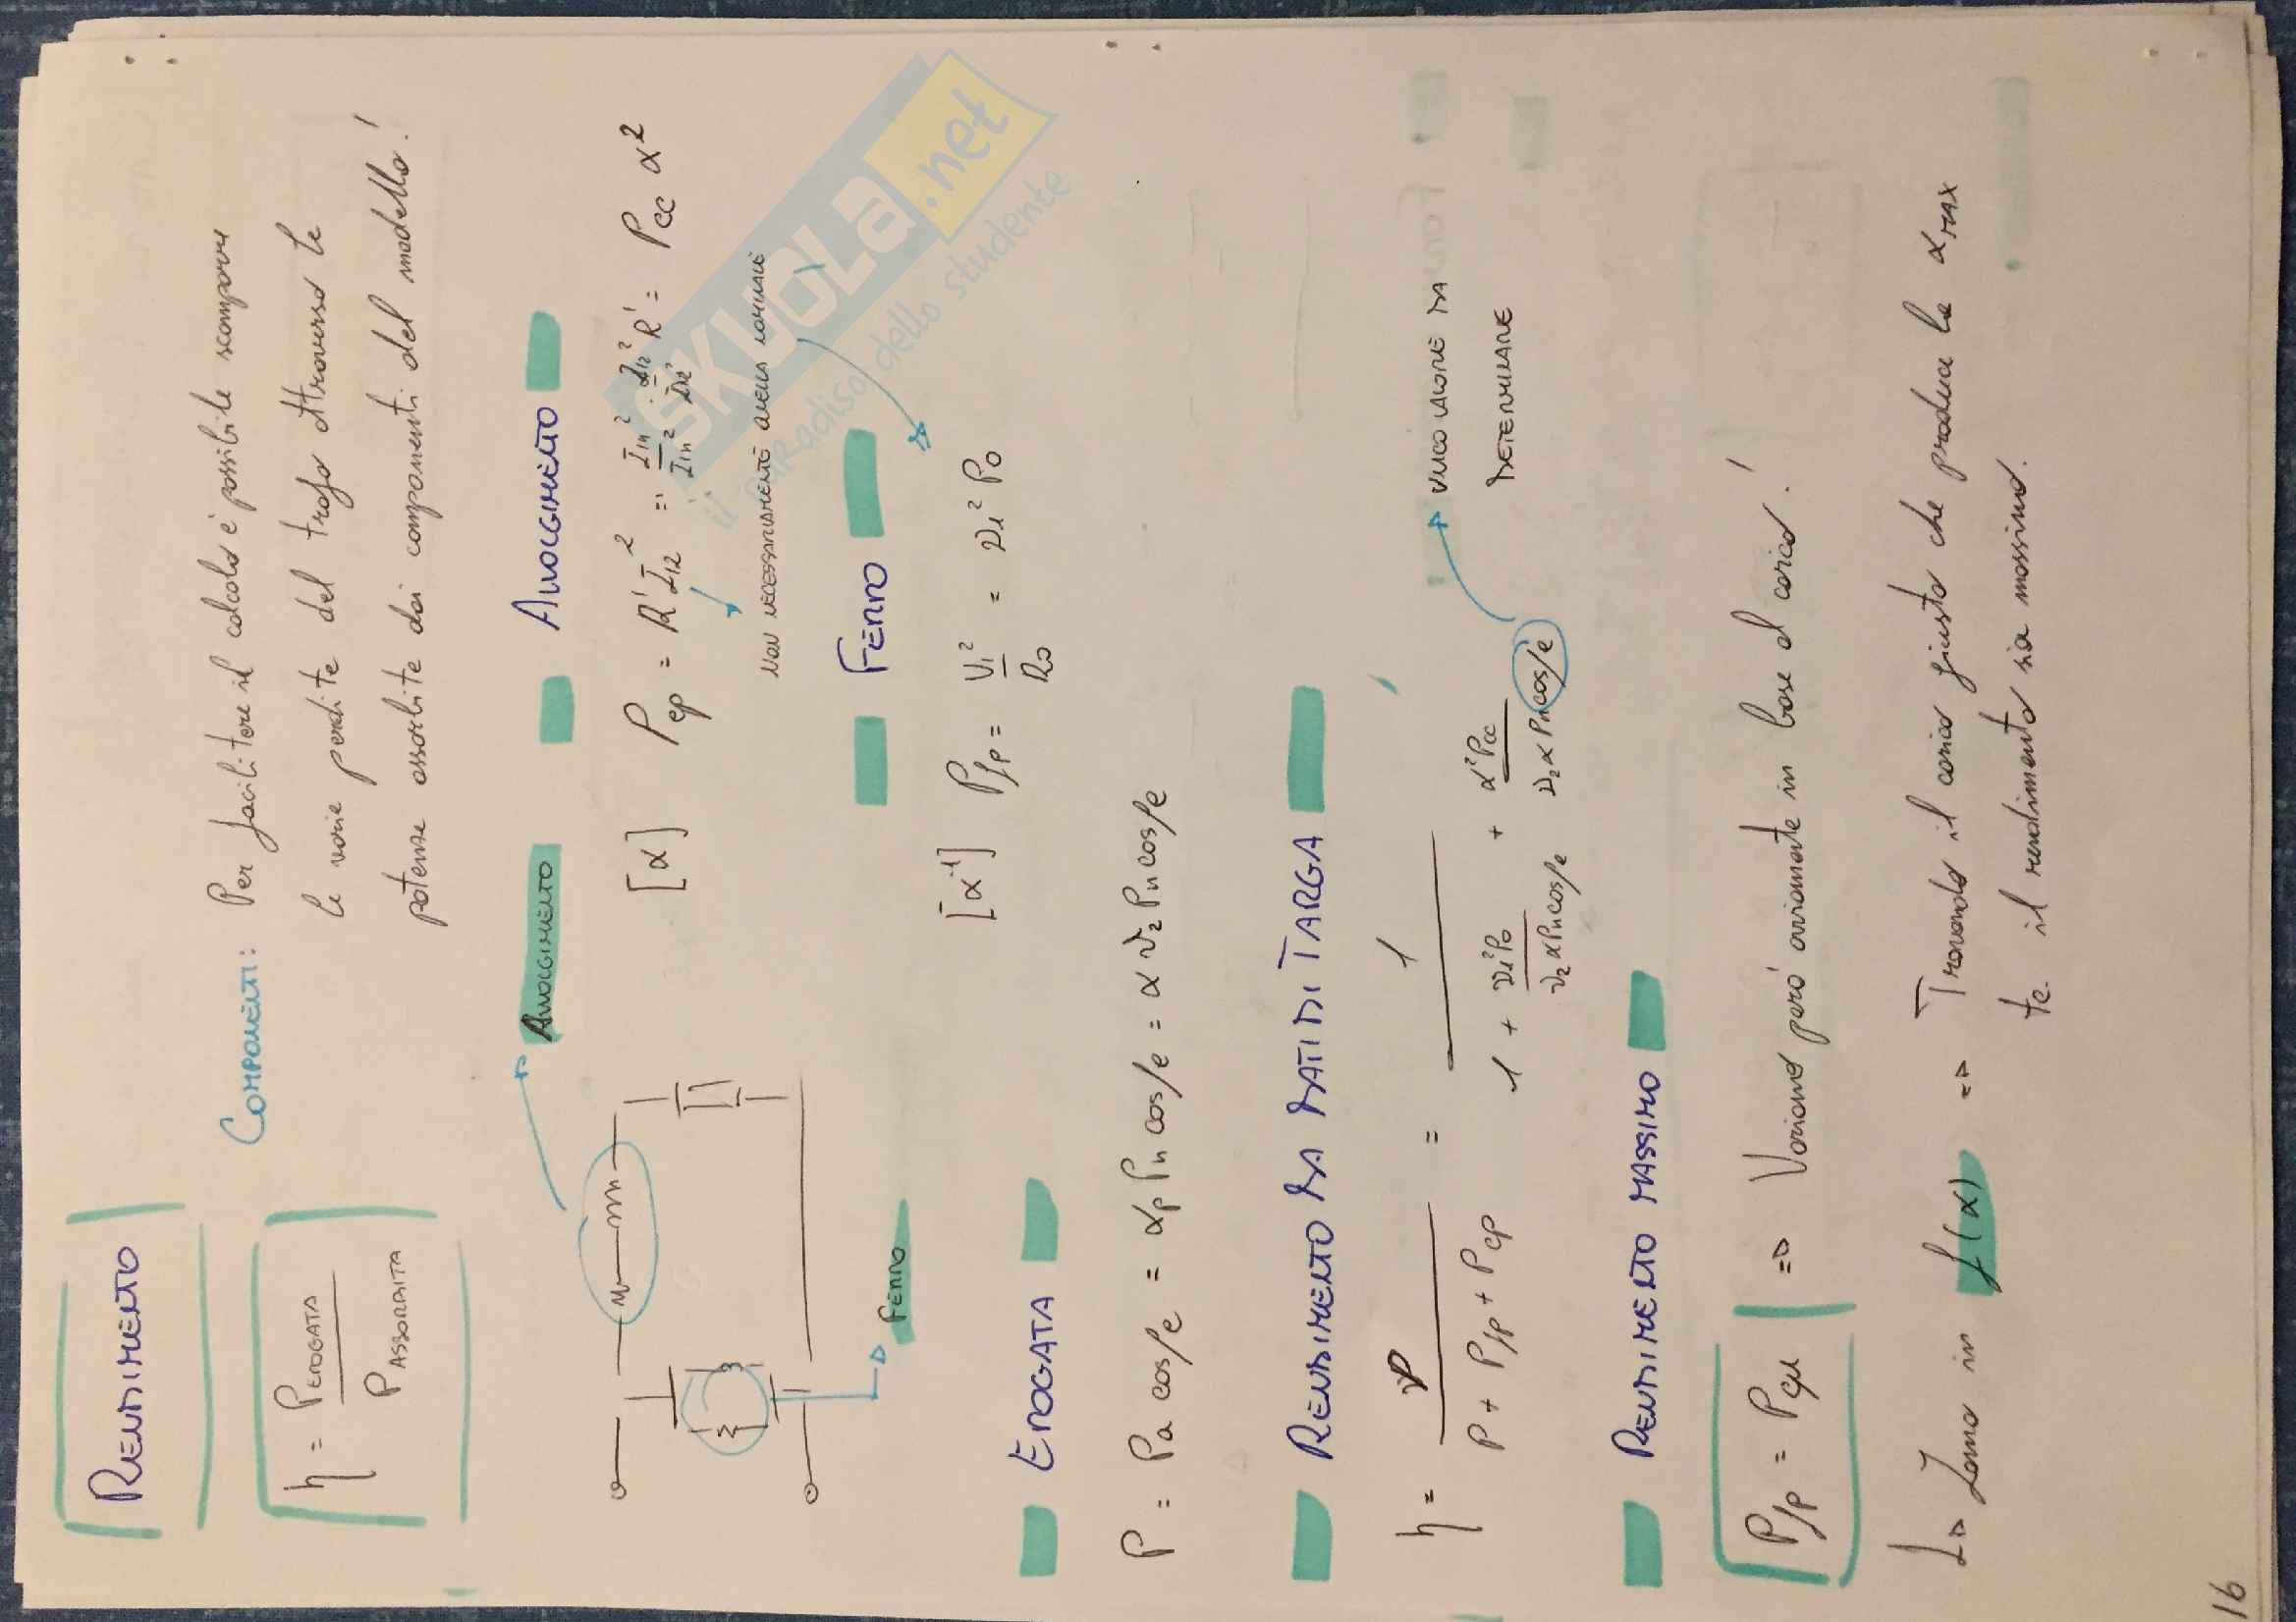 RENDIMENTO
η = P EROGATA / P ASSORBITA
COMPONENTI: Per facilitare il calcolo è possibile scomporre
le varie perdite del trafo attraverso le
potenze assorbite dai componenti del modello!
AVVOLGIMENTO
FERRO
AVVOLGIMENTO
[α] Pcp = R' I12² = I1n² / I1n² · I12² R' = Pcc α²
NON NECESSARIAMENTE QUELLA NOMINALE
FERRO
[α⁻¹] Pfp = U1² / R0 = ν1² P0
EROGATA
P = Pa cosφe = αp Pn cosφe = α ν2 Pn cosφe
RENDIMENTO DA DATI DI TARGA
η = P / P + Pfp + Pcp = 1 / 1 + ν1² P0 / ν2 α Pn cosφe + α² Pcc / ν2 α Pn cosφe
UNICO VALORE DA
DETERMINARE
RENDIMENTO MASSIMO
Pfp = Pcu => Variano però ovviamente in base al carico!
Siamo in f(α) => Trovando il carico giusto che produca la α MAX
te. il rendimento sia massimo.
16
SKUOLA.net
il paradiso dello studente